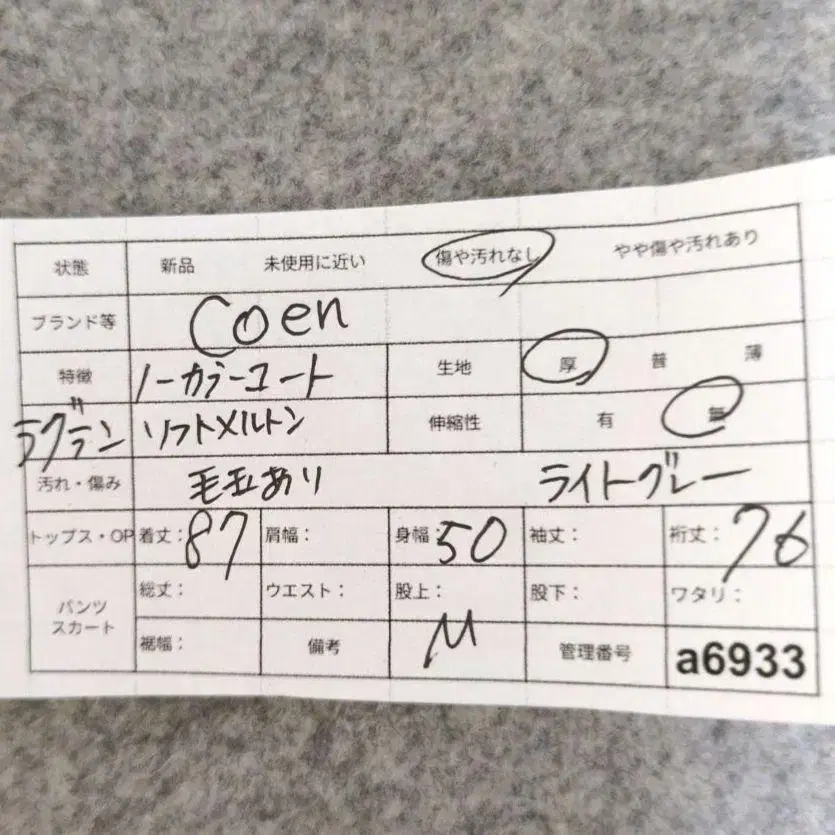 状態 新品 未使用に近い 傷や汚れなし やや傷や汚れあり
ブランド等 coen
特徴 ノーカラーコート 生地 厚 普 薄
ラグラン ソフトメルトン 伸縮性 有 無
汚れ・傷み 毛玉あり ライトグレー
トップス・OP 着丈: 87 肩幅: 身幅: 50 袖丈: 裄丈: 76
パンツ 総丈: ウエスト: 股上: 股下: ワタリ:
スカート 裾幅: 備考 M 管理番号 a6933